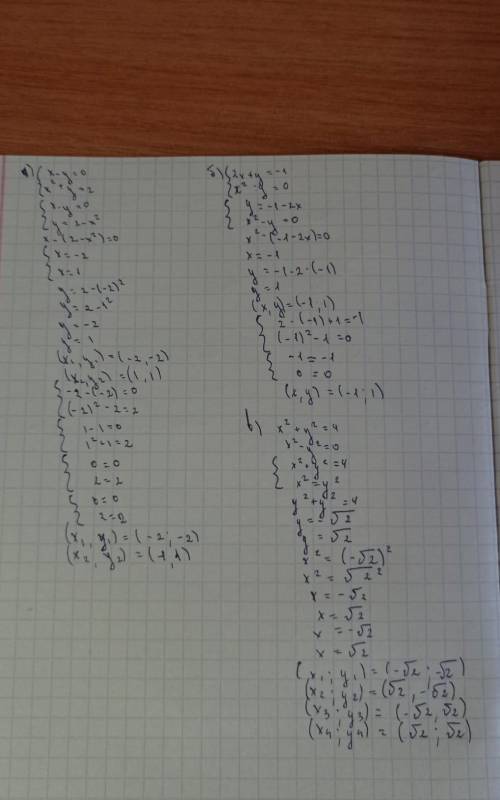 а) { x-y=0
x²+y=2
{ x-y=0
y=2-x²
x-(2-x²)=0
{ x=-2
x=1
{ y=2-(-2)²
y=2-1²
y=-2
y=1
(x₁,y₁)=(-2,-2)
(x₂,y₂)=(1,1)
{ -2-(-2)=0
(-2)²-2=2
{ 1-1=0
1²+1=2
{ 0=0
2=2
{ 0=0
2=2
(x₁, y₁)=(-2;-2)
(x₂, y₂)=(1,1)
б) { 2x+y=-1
x²-y=0
{ y=-1-2x
x²-y=0
x²-(-1-2x)=0
x=-1
y=-1-2·(-1)
y=1
(x,y)=(-1,1)
{ 2·(-1)+1=-1
(-1)²-1=0
{ -1=-1
0=0
(x,y)=(-1;1)
в) x²+y²=4
x²-y²=0
{ x²+y²=4
x²=y²
y²+y²=4
y=-√2
y=√2
x²=(-√2)²
x²=√2²
x=-√2
x=√2
x=-√2
x=√2
(x₁;y₁)=(-√2;-√2)
(x₂;y₂)=(√2,-√2)
(x₃;y₃)=(-√2,√2)
(x₄;y₄)=(√2;√2)